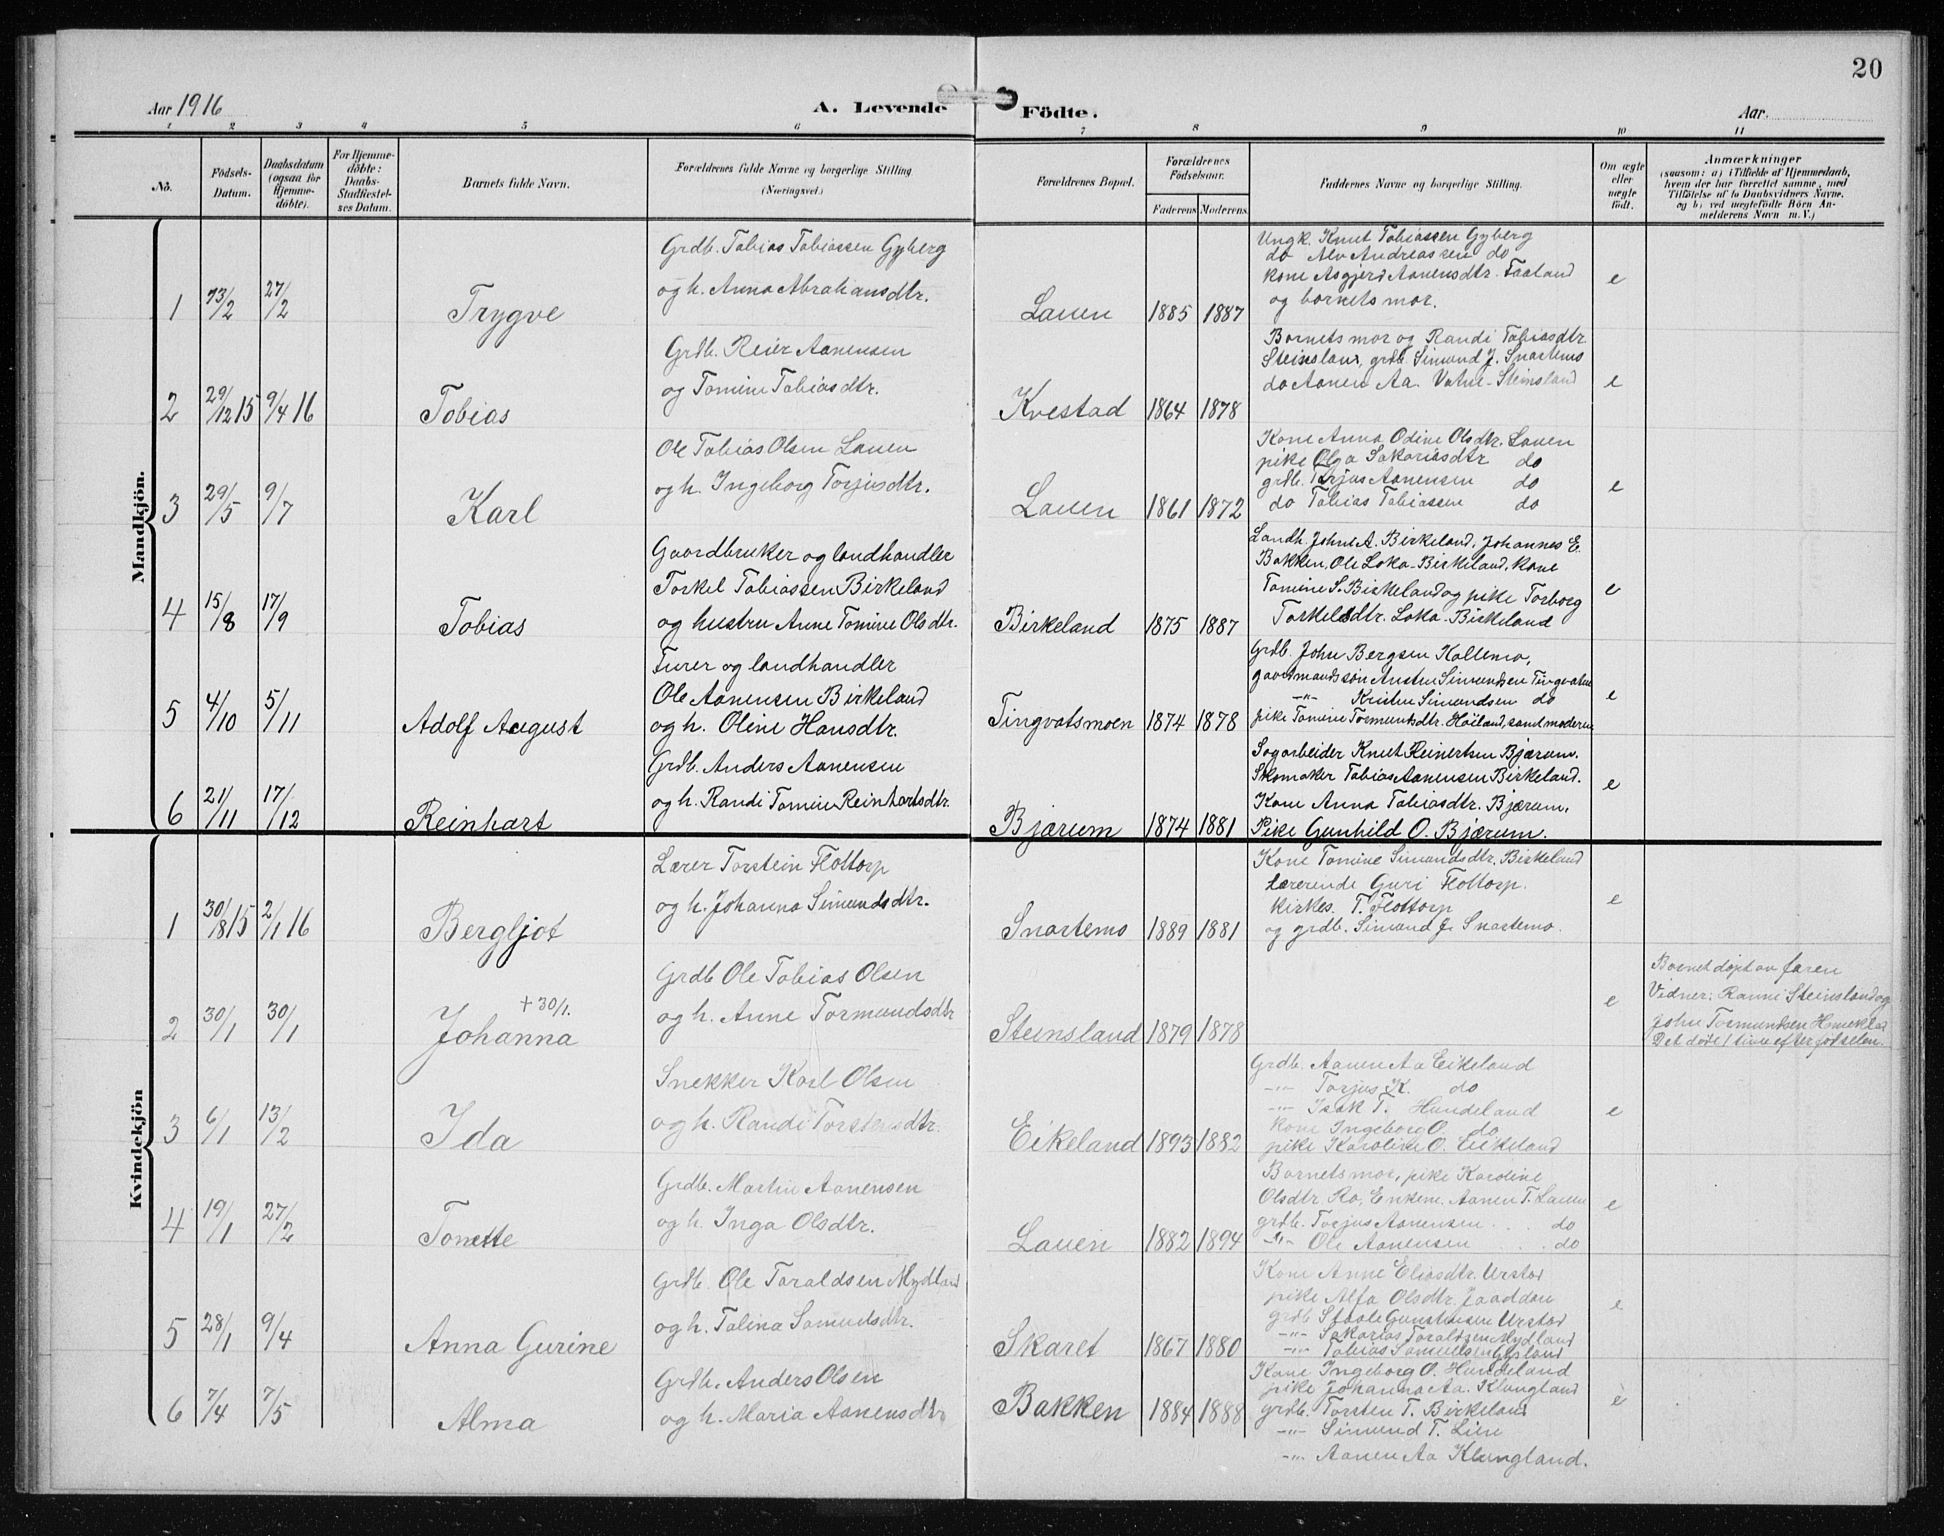 20
Aar 1916
A. Levende Födte.
Aar.
1 2 3 4 5 6 7 8 9 10 11
No.
Födsels-Datum.
Daabsdatum (ogsaa for Hjemme-döbte).
For Hjemme-döbte: Daabs-Stadfæstel-ses Datum.
Barnets fulde Navn.
Forældrenes fulde Navne og borgerlige Stilling (Næringsvei.)
Forældrenes Bopæl.
Forældrenes Födselsaar.
Faderens Moderens
Faddernes Navne og borgerlige Stilling.
Om ægte eller uægte födt.
Anmærkninger
(saasom: a) i Tilfælde af Hjemmedaab,
hvem der har forrettet samme, med
Tilföielse af to Daabsvidners Navne,
og b) ved uægtefödte Börn An-
melderens Navn m. V.)
Mandkjön.
1 13/2 27/2 Trygve
Grdb. Tobias Tobiassen Gyberg
og h. Anna Abrahamsdtr.
Lauen 1885 1887
Ungk. Knut Tobiassen Gyberg
do Alv Andreassen do
kone Asgjerd Aanensdtr. Faaland
og barnets mor.
e
2 29/12 15 9/4 16 Tobias
Grdb. Reier Aanensen
og Tomine Tobiasdtr.
Kvestad 1864 1878
Barnets mor og Randi Tobiasdtr
Steinsland, grdb. Simund J. Snartemo
do Aanen Aa. Vatne-Steinsland
e
3 29/5 9/7 Karl
Ole Tobias Olsen Lauen
og h. Ingeborg Torjusdtr.
Lauen 1861 1872
Kone Anna Odine Olsdtr. Lauen
pike Olga Sakariasdtr do
grdb. Torjus Aanensen do
do Tobias Tobiassen do
e
4 15/8 17/9 Tobias
Gaardbruker og landhandler
Torkel Tobiassen Birkeland
og hustru Anne Tomine Olsdtr.
Birkeland 1875 1887
Landh. John A. Birkeland, Johannes E.
Bakken, Ole Loka-Birkeland, kone
Tomine S. Birkeland og pike Torborg
Torkelsdtr. Loka-Birkeland
e
5 4/10 5/11 Adolf August
Furer og landhandler
Ole Aanensen Birkeland
og h. Oline Hansdtr.
Tingvatsmoen 1874 1878
Grdb. John Bergsen Kollemo,
gaardmandssøn Austen Simundsen Tingvatne
-"- Kristen Simundsen do
pike Tomine Tormundsdtr. Høiland, samt moderen
e
6 21/11 17/12 Reinhart
Grdb. Anders Aanensen
og h. Randi Tomine Reinhartsdtr.
Bjærum 1874 1881
Sagarbeider Knut Reinertsen Bjærum.
Skomaker Tobias Aanensen Birkeland.
Kone Anna Tobiasdtr. Bjærum.
Pike Gunhild O. Bjærum.
e
Kvindekjön
1 30/8 15 2/1 16 Bergljot
Lærer Torstein Flottorp
og h. Johanna Simundsdtr.
Snartemo 1889 1881
Kone Tomine Simundsdtr. Birkeland
Lærerinde Guri Flottorp.
kirkes. T. Flottorp
og grdb. Simund J. Snartemo.
e
2 30/1 30/1 Johanna +30/1.
Grdb Ole Tobias Olsen
og h. Anne Tormundsdtr
Steinsland 1879 1878
e
Barnet døpt av faren
Vidner: Ranni Steinsland og
John Tormundsen
Det døde 1 time efter fødselen.
3 6/1 13/2 Ida
Snekker Karl Olsen
og h. Randi Torstensdtr.
Eikeland 1893 1882
Grdb. Aanen Aa Eikeland
-"- Torjus K. do
-"- Isak T. Hundeland
kone Ingeborg O. do
pike Karoline O. Eikeland
e
4 19/1 27/2 Tonette
Grdb. Martin Aanensen
og h. Inga Olsdtr.
Lauen 1882 1894
Barnets mor, pike Karoline
Olsdtr Ro, Enkem. Aanen T. Lauen
grdb. Torjus Aanensen do
-"- Ole Aanensen do
e
5 28/1 9/4 Anna Gurine
Grdb. Ole Toraldsen Mydland
og h. Talina Samundsdtr.
Skaret 1867 1880
Kone Anne Eliasdtr. Urstad
pike Alfa Olsdtr.
grdb Staale Gunstensen Urstad
-"- Sakarias Toraldsen Mydland
-"- Tobias Samuelsen
e
6 7/4 7/5 Alma
Grdb. Anders Olsen
og h. Maria Aanensdtr
Bakken 1884 1888
Kone Ingeborg O. Hundeland
pike Johanna Aa. Klungland
grdb. Torsten T. Birkeland
-"- Simund T. Lien
-"- Aanen Aa Klungland.
e